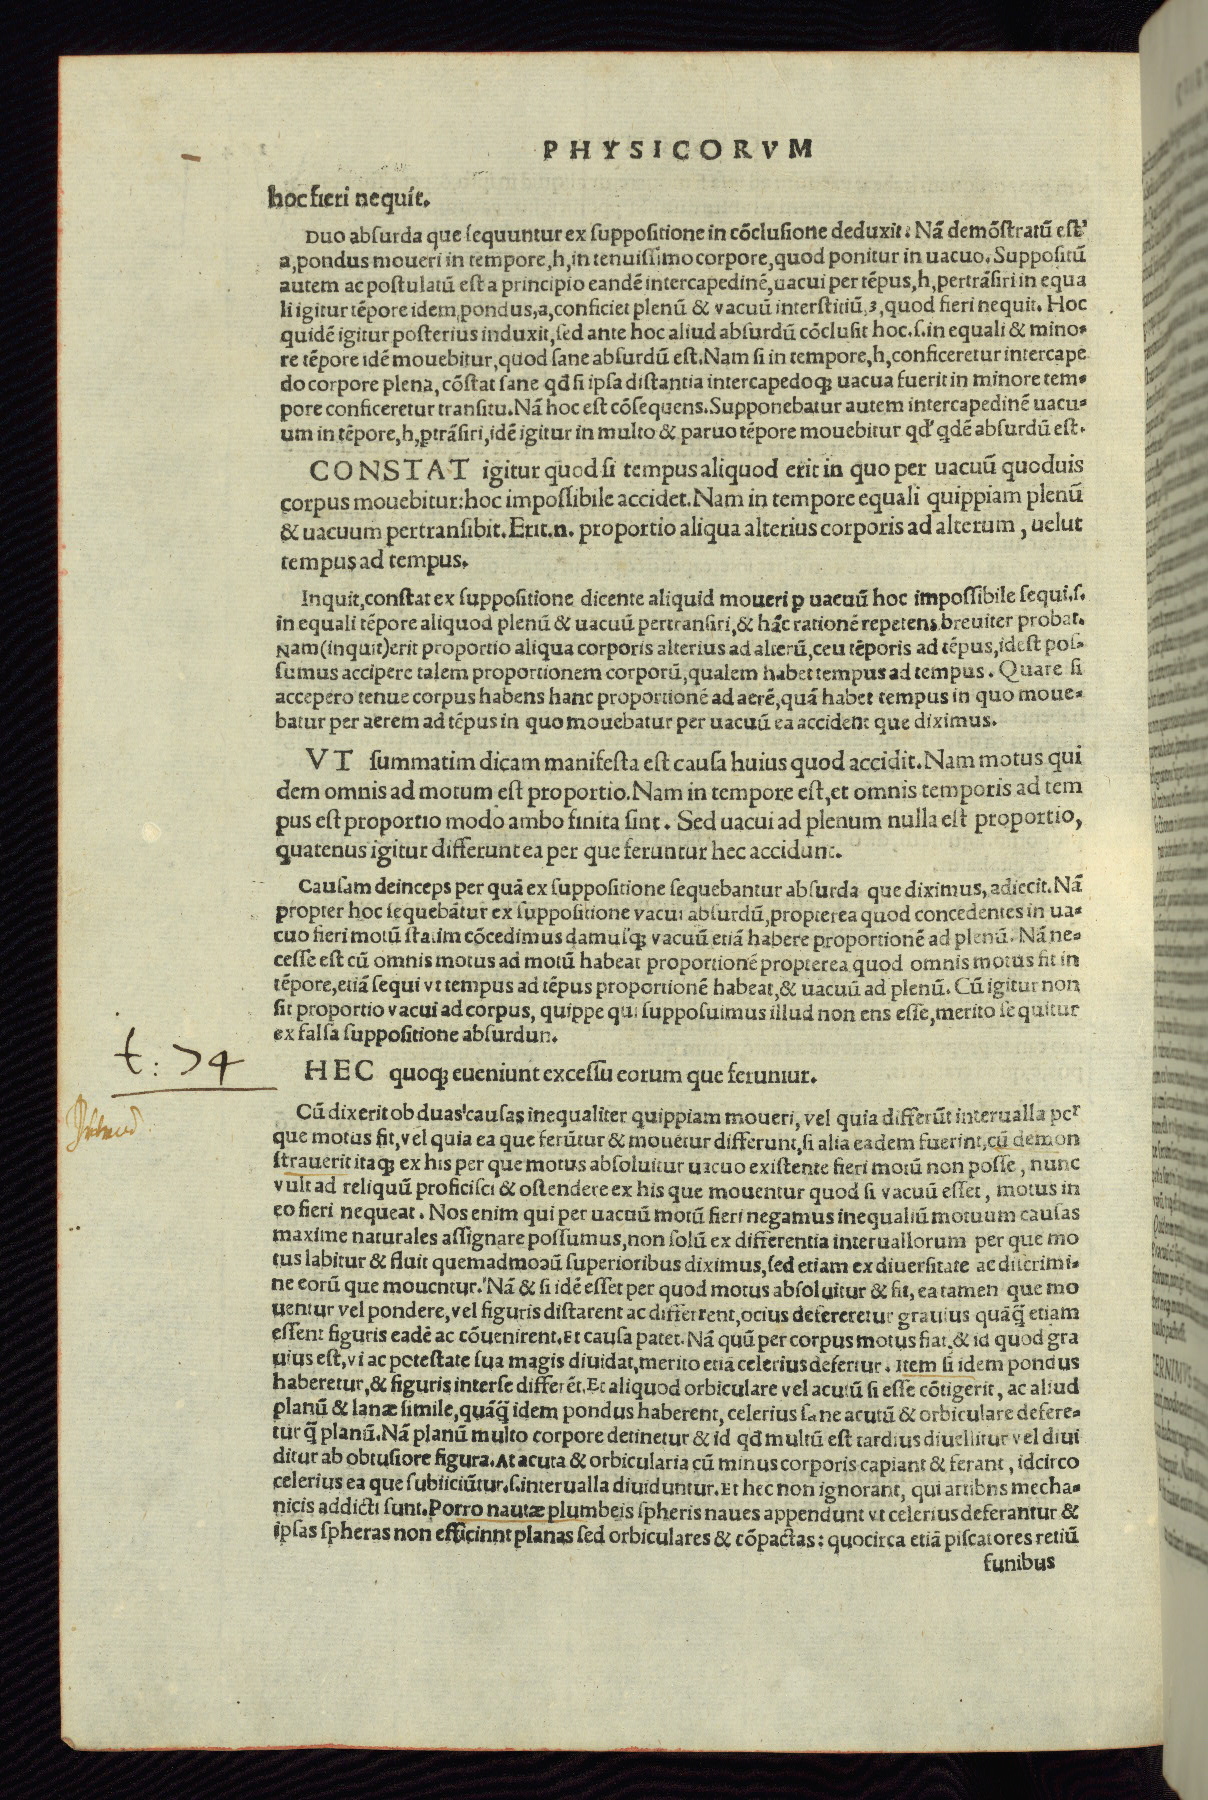 PHYSICORVM
hoc fieri nequit.
Duo absurda que sequuntur ex suppositione in cõclusione deduxit. Nã demõstratũ est'
a, pondus moueri in tempore, h, in tenuissimo corpore, quod ponitur in uacuo. Suppositũ
autem ac postulatũ est a principio eandẽ intercapedinẽ, uacui per tẽpus, h, pertrãsiri in equa
li igitur tẽpore idem, pondus, a, conficiet plenũ & vacuũ interstitiũ, 3, quod fieri nequit. Hoc
quidẽ igitur posterius induxit, sed ante hoc aliud absurdũ cõclusit hoc. s. in equali & mino-
re tẽpore idẽ mouebitur, quod sane absurdũ est. Nam si in tempore, h, conficeretur intercape
do corpore plena, cõstat sane qđ si ipsa distantia intercapedoqꝫ uacua fuerit in minore tem-
pore conficeretur transitu. Nã hoc est cõsequens. Supponebatur autem intercapedinẽ uacu-
um in tẽpore, h, ꝑtrãsiri, idẽ igitur in multo & paruo tẽpore mouebitur qđ' qdẽ absurdũ est.
CONSTAT igitur quod si tempus aliquod erit in quo per uacuũ quoduis
corpus mouebitur: hoc impossibile accidet. Nam in tempore equali quippiam plenũ
& uacuum pertransibit. Erit. n. proportio aliqua alterius corporis ad alterum, uelut
tempus ad tempus.
Inquit, constat ex suppositione dicente aliquid moueri ꝑ uacuũ hoc impossibile sequi. s.
in equali tẽpore aliquod plenũ & uacuũ pertransiri, & hãc rationẽ repetens breuiter probat.
Nam (inquit) erit proportio aliqua corporis alterius ad alterũ, ceu tẽporis ad tẽpus, idest pos-
sumus accipere talem proportionem corporũ, qualem habet tempus ad tempus. Quare si
accepero tenue corpus habens hanc proportionẽ ad aerẽ, quã habet tempus in quo moue-
batur per aerem ad tẽpus in quo mouebatur per uacuũ ea accident que diximus.
VT summatim dicam manifesta est causa huius quod accidit. Nam motus qui
dem omnis ad motum est proportio. Nam in tempore est, et omnis temporis ad tem
pus est proportio modo ambo finita sint. Sed uacui ad plenum nulla est proportio,
quatenus igitur differunt ea per que feruntur hec accidunt.
Causam deinceps per quã ex suppositione sequebantur absurda que diximus, adiecit. Nã
propter hoc sequebãtur ex suppositione vacui absurdũ, propterea quod concedentes in ua-
cuo fieri motũ statim cõcedimus damusqꝫ vacuũ etiã habere proportionẽ ad plenũ. Nã ne-
cesse est cũ omnis motus ad motũ habeat proportionẽ propterea quod omnis motus fit in
tẽpore, etiã sequi vt tempus ad tẽpus proportionẽ habeat, & uacuũ ad plenũ. Cũ igitur non
sit proportio vacui ad corpus, quippe qui supposuimus illud non ens esse, merito sequitur
ex falsa suppositione absurdun.
t: 74
HEC quoqꝫ eueniunt excessu eorum que feruntur.
Cũ dixerit ob duas causas inequaliter quippiam moueri, vel quia differũt interualla per
que motus fit, vel quia ea que ferũtur & mouẽtur differunt, si alia eadem fuerint, cũ demon
strauerit itaqꝫ ex his per que motus absoluitur uacuo existente fieri motũ non posse, nunc
vult ad reliquũ proficisci & ostendere ex his que mouentur quod si vacuũ esset, motus in
eo fieri nequeat. Nos enim qui per uacuũ motũ fieri negamus inequaliũ motuum causas
maxime naturales assignare possumus, non solũ ex differentia interuallorum per que mo
tus labitur & fluit quemadmodũ superioribus diximus, sed etiam ex diuersitate ac discrimi-
ne eorũ que mouentur. Nã & si idẽ esset per quod motus absoluitur & fit, ea tamen que mo
uentur vel pondere, vel figuris distarent ac differrent, ocius defereretur grauius quãq̃ etiam
essent figuris eadẽ ac cõuenirent. Et causa patet. Nã quũ per corpus motus fiat, & id quod gra
uius est, vi ac potestate sua magis diuidat, merito etiã celerius defertur. Item si idem pondus
haberetur, & figuris interse differẽt. Et aliquod orbiculare vel acutũ si esse cõtigerit, ac aliud
planũ & lanæ simile, quãq̃ idem pondus haberent, celerius sane acutũ & orbiculare defere-
tur q̃ planũ. Nã planũ multo corpore detinetur & id qđ multũ est tardius diuellitur vel diui
ditur ab obtusiore figura. At acuta & orbicularia cũ minus corporis capiant & ferant, idcirco
celerius ea que subiiciũtur. s. interualla diuiduntur. Et hec non ignorant, qui artibns mecha-
nicis addicti sunt. Porro nautæ plumbeis spheris naues appendunt vt celerius deferantur &
ipsas spheras non efficinnt planas sed orbiculares & cõpactas: quocirca etiã piscatores retiũ
funibus